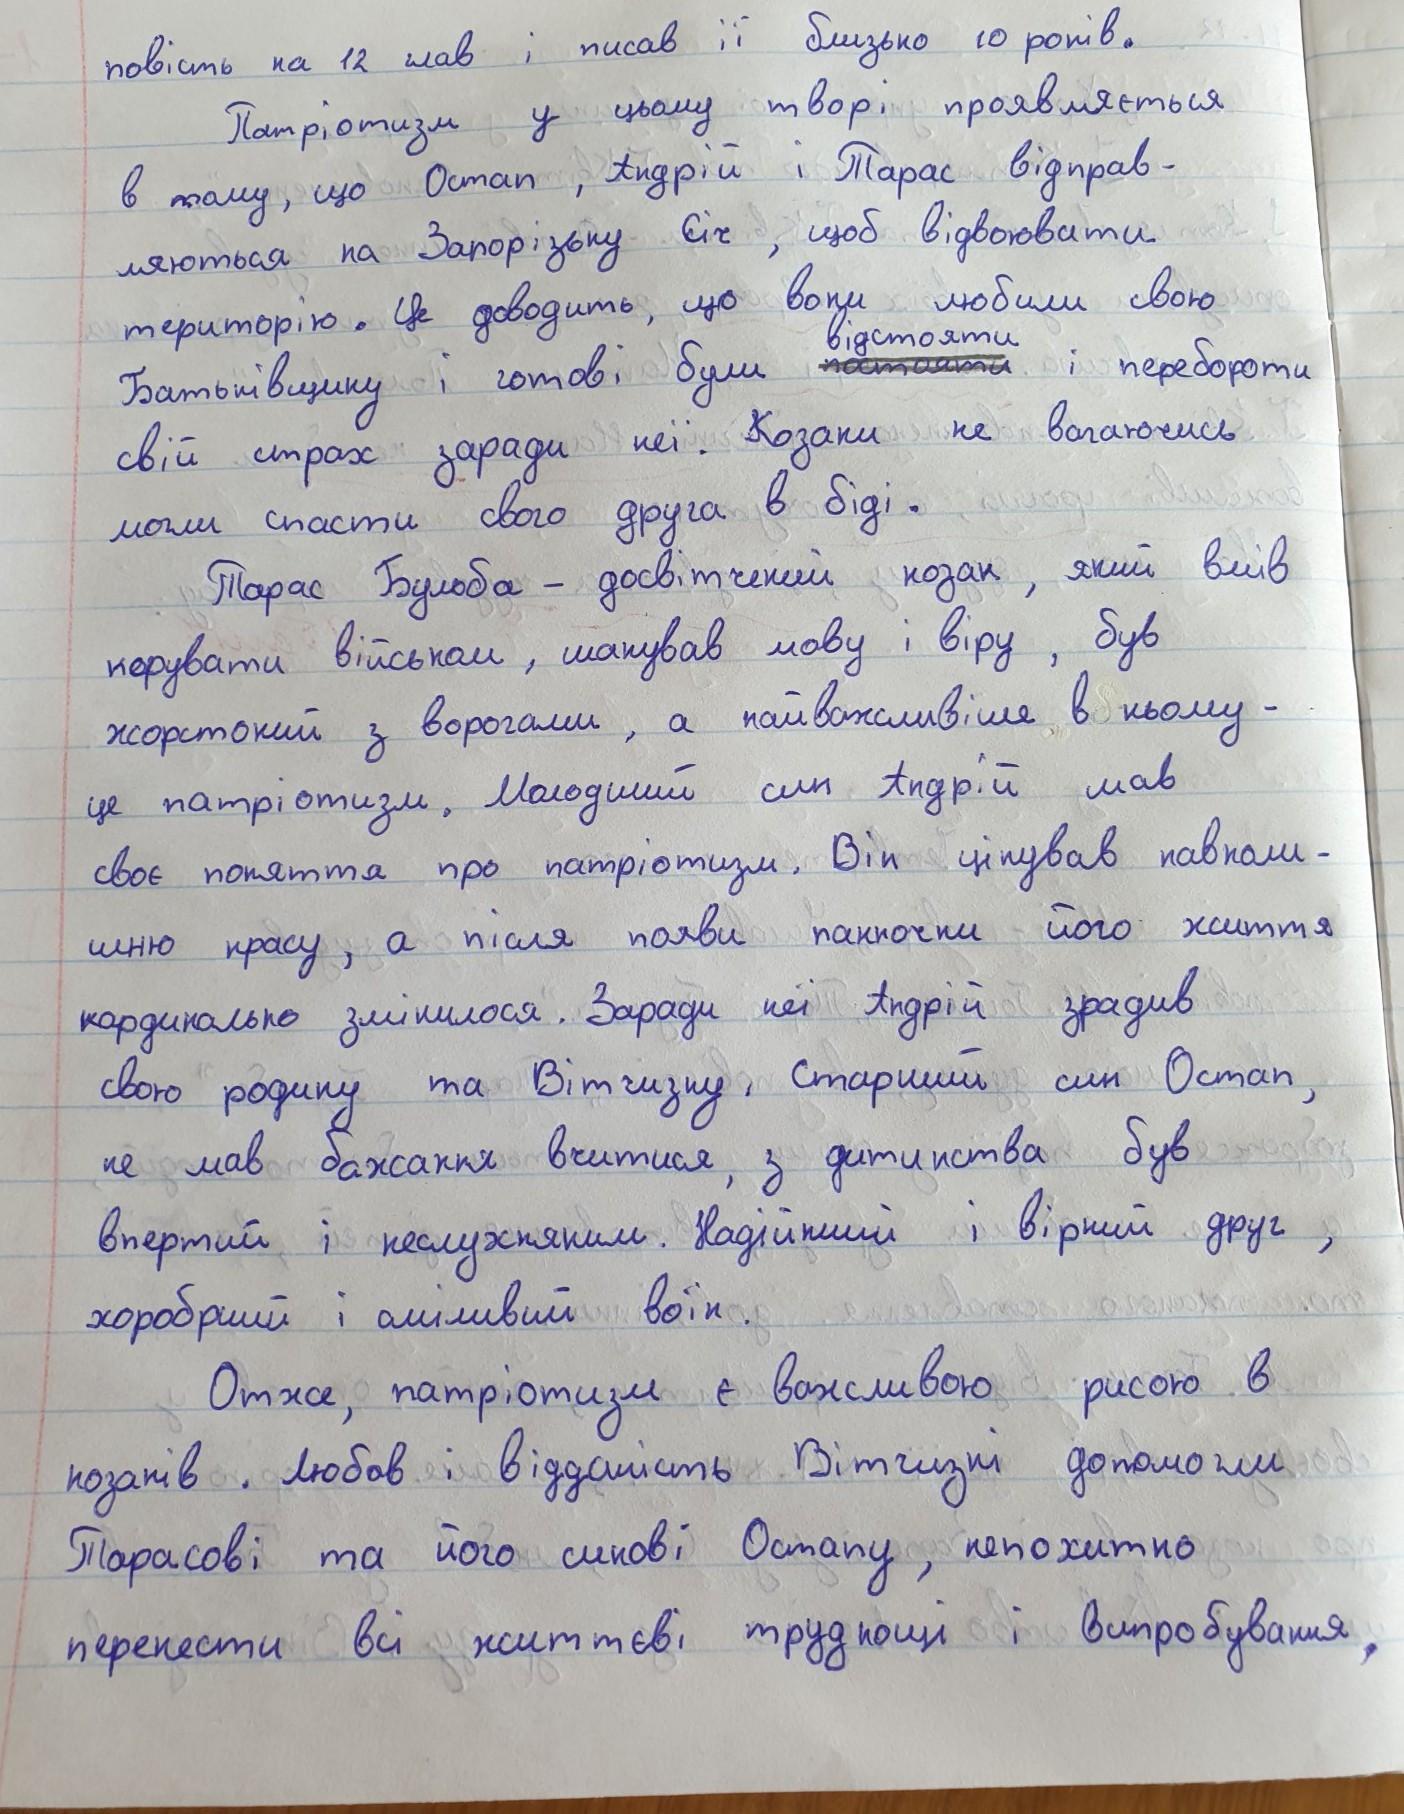 повість на 12 глав і писав її близько 10 років.
Патріотизм у цьому творі проявляється
в тому, що Остап, Андрій і Тарас відправ-
ляються на Запорізьку Січ, щоб відвоювати
територію. Це доводить, що вони любили свою
відстояти
Батьківщину і готові були постояти і перебороти
свій страх заради неї. Козаки не вагаючись
могли спасти свого друга в біді.
Тарас Бульба – досвітчений козак, який вмів
керувати військом, шанував мову і віру, був
жорстокий з ворогами, а найважливіше в ньому -
це патріотизм. Молодший син Андрій мав
своє поняття про патріотизм. Він цінував навколи-
шню красу, а після появи панночки його життя
кардинально змінилося. Заради неї Андрій зрадив
свою родину та Вітчизну. Старший син Остап,
не мав бажання вчитися, з дитинства був
впертий і неслухняним. Надійнший і вірний друг,
хоробрий і сміливий воїн.
Отже, патріотизм є важливою рисою в
козаків. Любов і відданість Вітчизні допомогли
Тарасові та його синові Остапу, непохитно
перенести всі життєві труднощі і випробування.